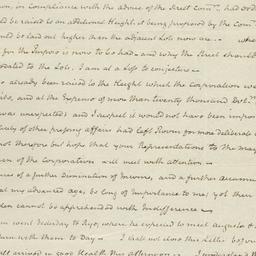 own, in Compliance with the advice of the Street Com.rs had ord
uld be raised to an additional Height, it being proposed by the Com.
ould be laid out higher than the adjacent Lots now are — whe
for this Purpose is now to be had — and why the Street should
odated to the Lots, I am at a Loss to conjecture —
already been raised to the Height which the Corporation we
ito, and at the Expense of more than twenty thousand Dol.rs
was unexpected; and I expect it would not have been impos
ively of other pressing affairs had left Room for more deliberate
not therefore but hope that your Representations to the May
en of the Corporation will meet with attention —
ces of a further Diminution of Income, and a further accumu
at my advanced age, be long of Importance to me; yet their
den cannot be apprehended with Indifference —
m went yesterday to Rye, where he expected to meet Augusta &
turn with them to Day — I will not close this Letter before
all arrived in good Health this afternoon —